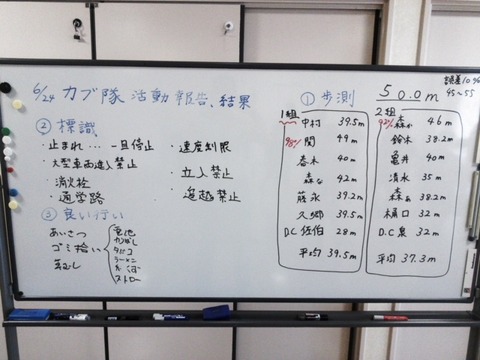 6/24 カブ隊 活動報告、結果
② 標識
・止まれ…一旦停止
・大型車両進入禁止
・消火栓
・通学路
・速度制限
・立入禁止
・追越禁止
③ 良い行い
あいさつ
ゴミ拾い
電池
カンばし
タバコ
ラーメン
ストロー
① 歩測 50.0m
誤差10%
45~55
1組
中村 39.5m
98% 関 49m
春木 40m
森な 42m
藤永 39.2m
久郷 39.5m
D.C 佐伯 28m
平均 39.5m
2組
92% 森か 46m
鈴木 38.2m
亀井 40m
清水 35m
森あ 38.2m
樋口 32m
D.C 泉 32m
平均 37.3m